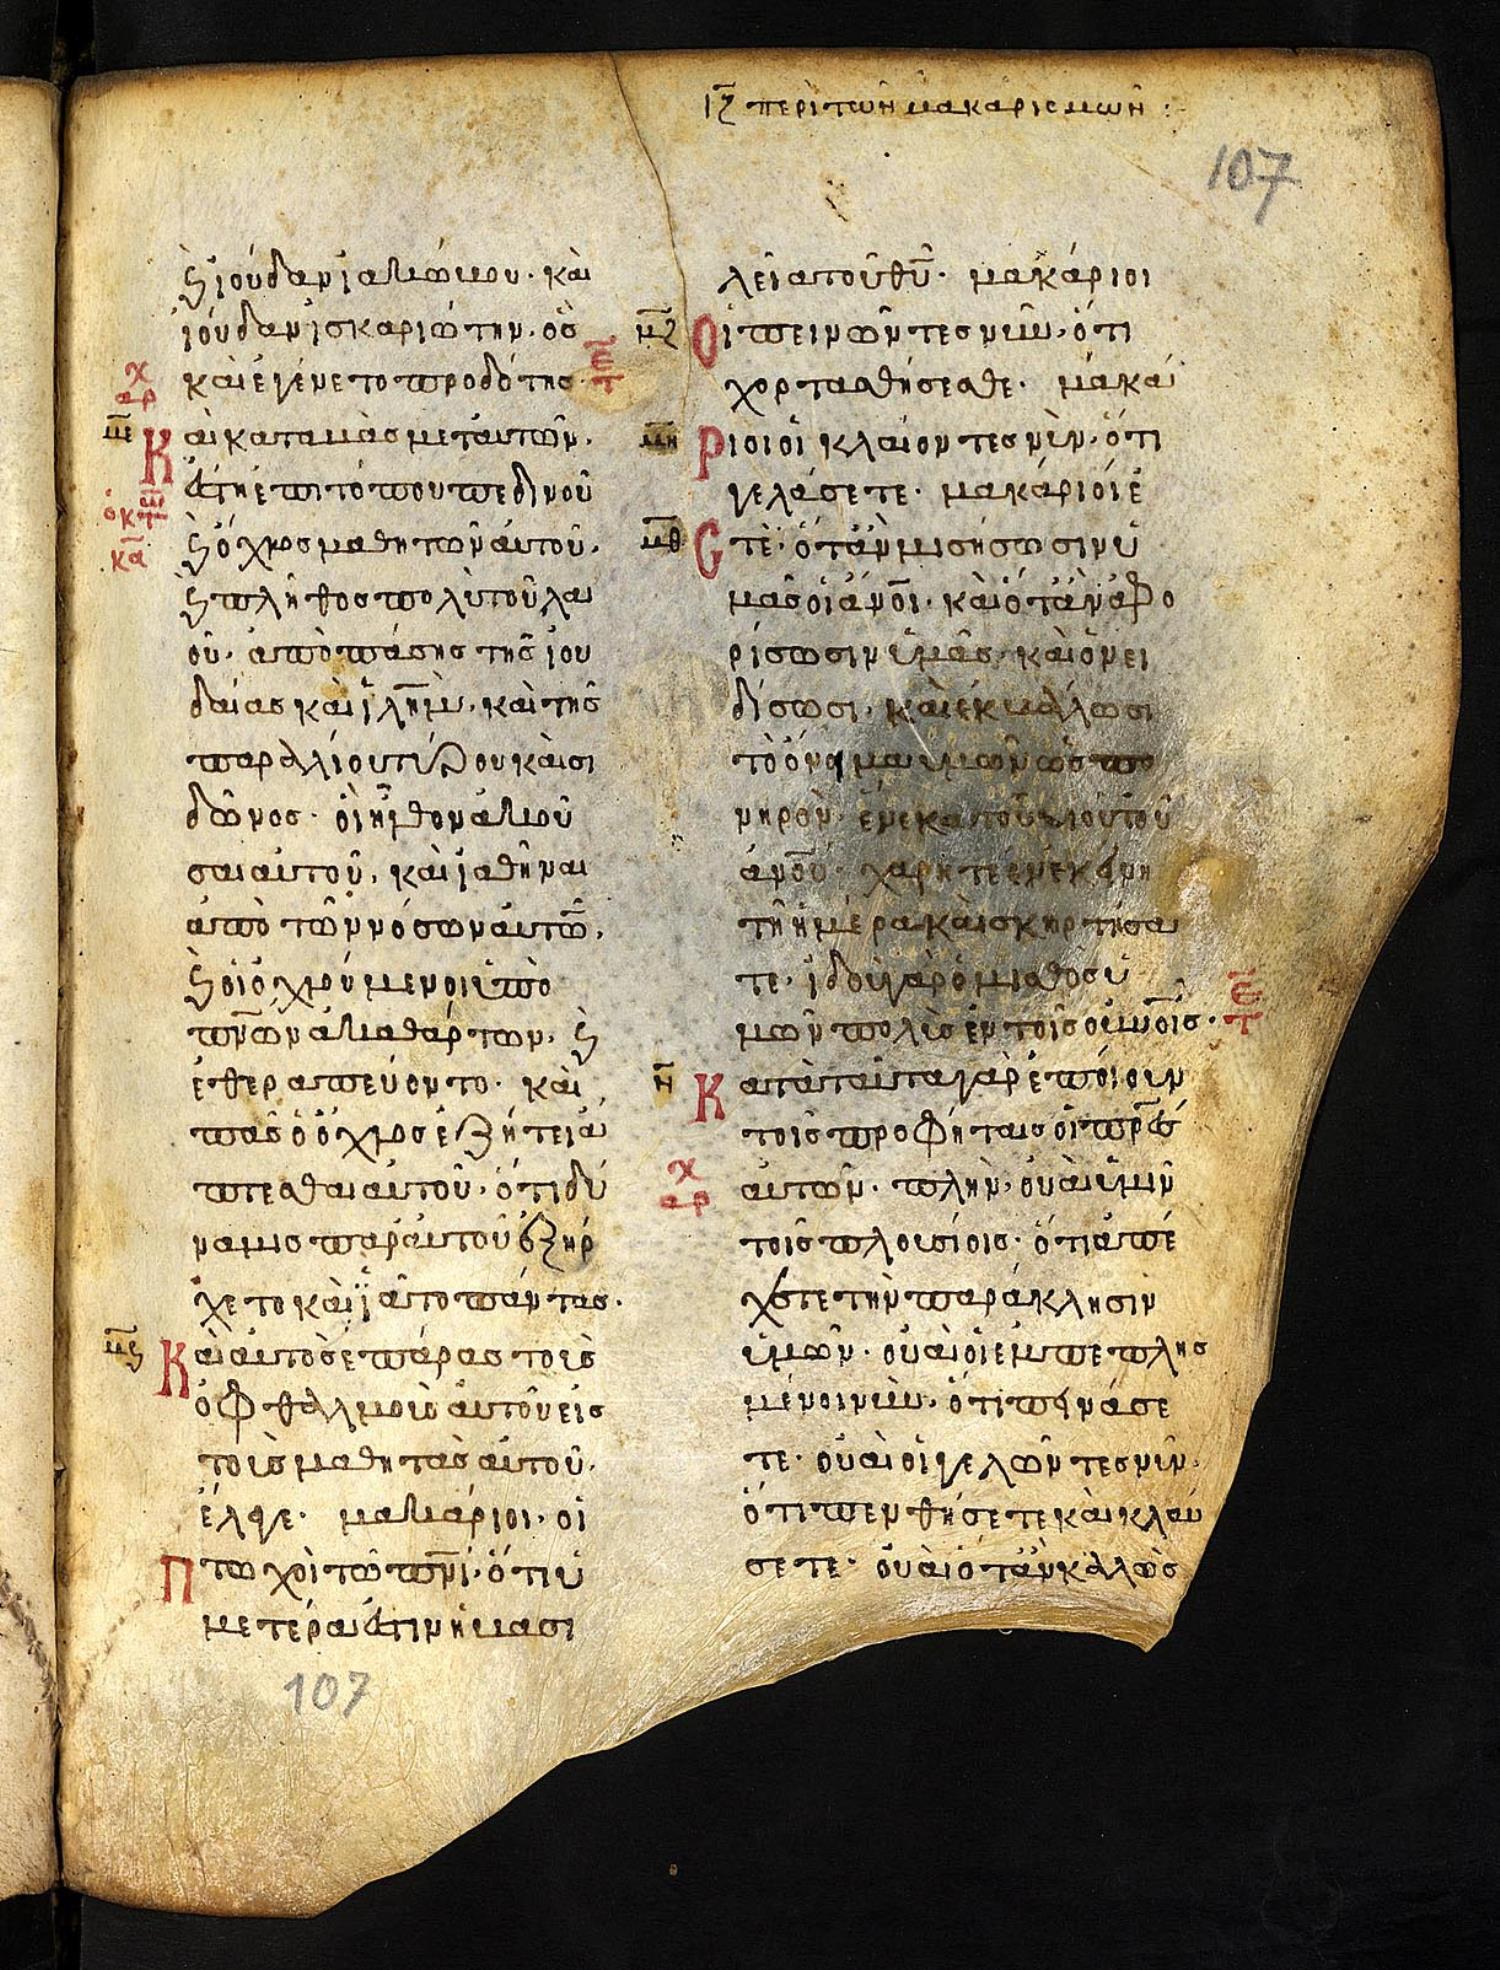 ιζ περι των μακαρισμων :
107
ϗ ἰούδαν ἰακώβου· καὶ
ἰούδαν ἰσκαριώτην· ὃς
χ
καὶ ἐγένετο προδότης· τε
αρ
με
Καὶ καταβὰς μετ' αὐτῶν,
ἔστη ἐπὶ τόπου πεδινοῦ
κα
ϗ ὄχλος μαθητῶν αὐτοῦ,
ϗ πλῆθος πολὺ τοῦ λα
οῦ, ἀπὸ πάσης τῆς ἰου
δαίας καὶ ἰλημ, καὶ τῆς
παραλίου τύρου καὶ σι
δῶνος· οἳ ἦλθον ἀκοῦ
σαι αὐτοῦ, καὶ ἰαθῆναι
ἀπὸ τῶν νόσων αὐτῶ,
ϗ οἱ ὀχλούμενοι ὑπὸ
πνων ἀκαθάρτων, ϗ
ἐθεραπεύοντο· καὶ
πᾶς ὁ ὄχλος ἐζήτει ἅ
πτεσθαι αὐτοῦ, ὅτι δύ
ναμις παρ' αὐτοῦ ἐξήρ
χετο καὶ ἰᾶτο πάντας·
μϛ
Καὶ αὐτὸς ἐπάρας τοὺς
ὀφθαλμοὺς αὐτοῦ εἰς
τοὺς μαθητὰς αὐτοῦ,
ἔλεγε· μακάριοι οἱ
Πτωχοὶ τῶ πνι, ὅτι ὑ
μετέρα ἐστὶν ἡ βασι
107
λεία τοῦ θυ· μακάριοι
μζ
Οἱ πεινῶντες νῦν, ὅτι
χορτασθήσεσθε· μακά
μη
Ριοι οἱ κλαίοντες νῦν, ὅτι
γελάσετε· μακάριοί ἐ
μθ
Στὲ· ὅταν μισήσωσιν ὑ
μᾶς οἱ ἀνοι· καὶ ὅταν ἀφο
ρίσωσιν ὑμᾶς, καὶ ὀνει
δίσωσι, καὶ ἐκβάλωσι
τὸ ὄνομα ὑμῶν ὡς πο
νηρὸν ἕνεκα τοῦ υἱοῦ τοῦ
ἀνου· χάρητε ἐν ἐκείνη
τῆ ἡμέρα καὶ σκιρτήσα
τε· ἰδοὺ γὰρ ὁ μισθὸς ὑ
μῶν πολὺς ἐν τοῖς οὐνοις· τε
ν
Κατὰ ταῦτα γὰρ ἐποίουν
τοῖς προφήταις οἱ πρες
χ
αρ
αὐτῶν· πλὴν, οὐαὶ ὑμῖν
τοῖς πλουσίοις· ὅτι ἀπέ
χετε τὴν παράκλησιν
ὑμῶν· οὐαὶ οἱ ἐμπεπλησ
μένοι νῦν, ὅτι πεινάσε
τε· οὐαὶ οἱ γελῶντες νῦν,
ὅτι πενθήσετε καὶ κλαύ
σετε· οὐαὶ ὅταν καλῶς